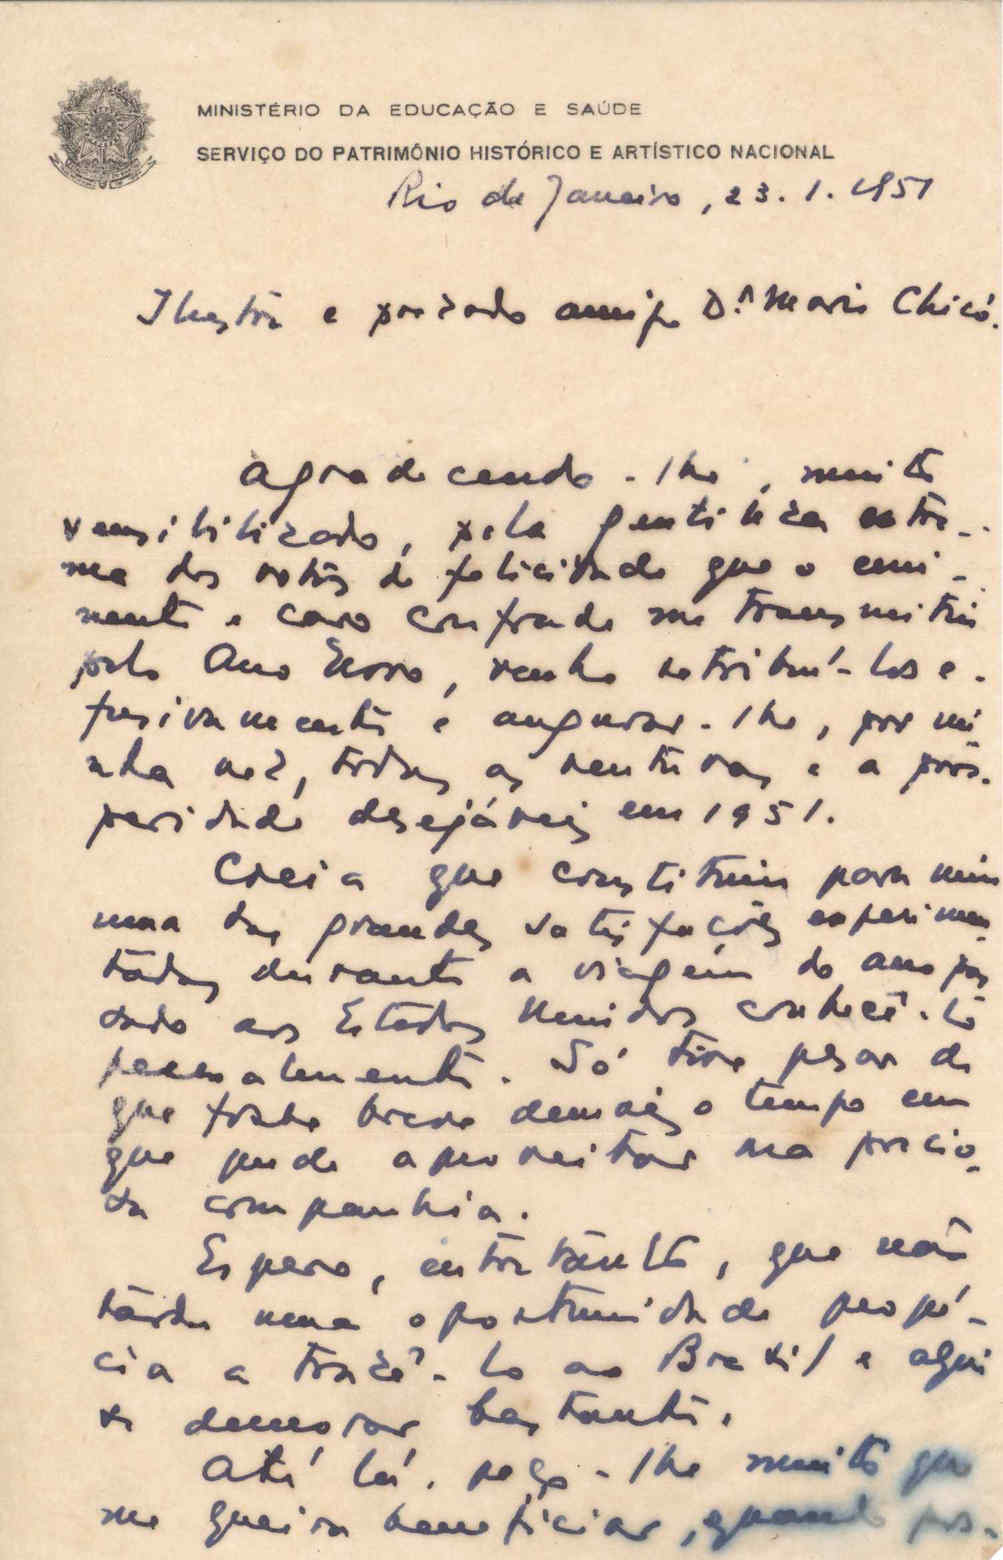 MINISTÉRIO DA EDUCAÇÃO E SAÚDE
SERVIÇO DO PATRIMÔNIO HISTÓRICO E ARTÍSTICO NACIONAL
Rio de Janeiro, 23.1.1951
Ilustre e prezado amigo Dr. Mario Chicó.
Agradecendo-lhe, muito
sensibilizado, pela gentileza extre-
ma dos votos de felicidade que o emi-
nente e caro confrade me transmitiu
pelo Ano Novo, venho retribuí-los e-
fusivamente e augurar-lhe, por mi
nha vez, todas as venturas e a pros-
peridade desejáveis em 1951.
Creia que constituiu para mim
uma das grandes satisfações experimen
tadas durante a viagem do ano pas
sado aos Estados Unidos conhecê-lo
pessoalmente. Só tive pesar de
que fosse breve demais o tempo em
que pude aproveitar sua precio-
sa companhia.
Espero, entretanto, que não
tarde uma oportunidade propí-
cia a trazê-lo ao Brasil e aqui
se demorar bastante.
Até lá, peço-lhe muito que
me queira beneficiar, quando pos-